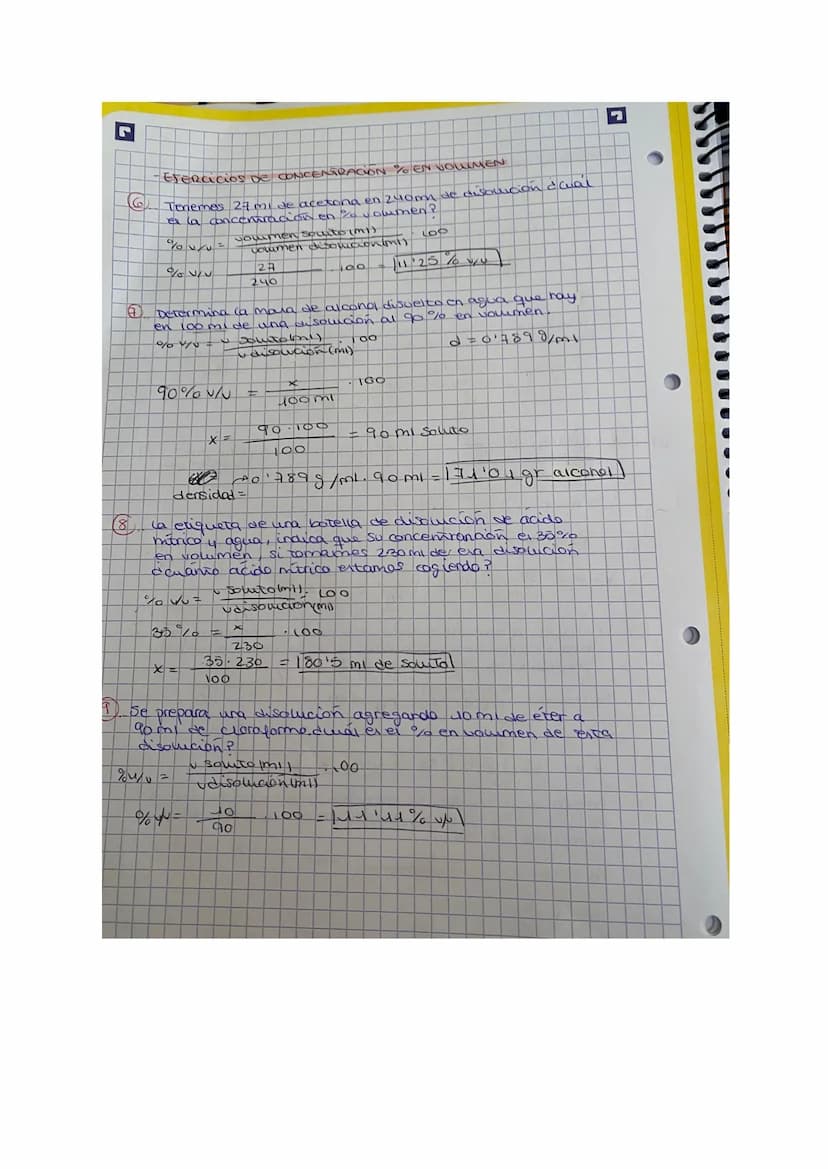 - EJERCICIOS DE CONCENTRACIÓN % EN VOLUMEN
6. Tenemes 27 ml de acetona en 240 ml de disolución ¿cuál
es la concentración en % volumen?
% v/v = volumen soluto (ml) / volumen disolución (ml) · 100
% v/v 27 / 240 · 100 = 11'25 % v/v
7. Determina la masa de alcohol disuelto en agua que hay
en 100 ml de una disolución al 90 % en volumen.
% v/v = v soluto (ml) / v disolución (ml) · 100 d = 0'789 g/ml
90% v/v = x / 100 ml · 100
x = 90 · 100 / 100 = 90 ml soluto
→ 0'789 g/ml · 90 ml = 71'01 gr alcohol
densidad =
8. La etiqueta de una botella de disolución de ácido
nítrico y agua, indica que su concentración es 35%
en volumen, si tomamos 230 ml de esa disolución
¿cuánto ácido nítrico estamos cogiendo?
% v/v = v soluto (ml) / v disolución (ml) · 100
35 % = x / 230 · 100
x = 35 · 230 / 100 = 80'5 ml de soluto
9. Se prepara una disolución agregando 10 ml de éter a
90 ml de cloroformo ¿cuál es el % en volumen de esta
disolución?
% v/v = v soluto (ml) / v disolución (ml) · 100
% v/v = 10 / 90 · 100 = 11'11 % v/v